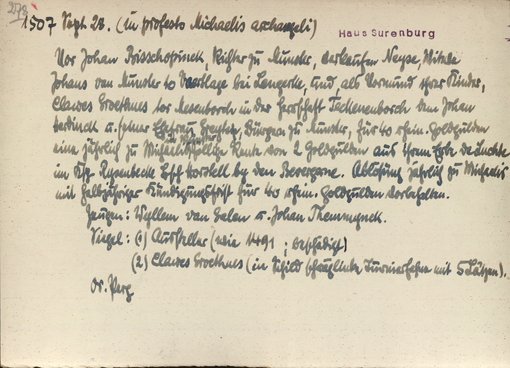 278
1507 Sept 28. (in profesto Michaelis archangeli)
Haus Surenburg
Vor Johan Bisschopinck, Richter zu Munster, verkaufen Neyse, Witwe
Johans van Munster to Vortlage bei Lengerke, und, als Vormund ihrer Kinder,
Clawes Groethues tor Mesenborch in der Grafschaft Teckenenborch dem Johan
u. seiner Ehefrau Greyten, Burgern zu Munster, für 40 rhein. Goldgulden
eine jährlich zu Michaelis fällige Rente von 2 Goldgulden aus ihrem Erbe de
im Ksp. Rysenbecke Bscft by den Bevergerne. Ablösung jährlich zu Michaelis
mit halbjähriger Kündigungsfrist für 40 rhein. Goldgulden vorbehalten.
Zeugen: Wyllem van Dalen u. Johan
Siegel: (1) Aussteller (wie 1491; beschädigt)
(2) Clawes Groethues (im Schild schräglinke Turnierfahne mit 5 Lätzen).
Or. Perg